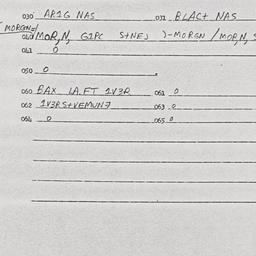 030 AR1G NAS 031 BLAC+ NAS
MORGN=/
040 MOR,N, G1PC S+NE) )-MORGN / MOR,N, S
041 0
050 0
060 BAX LA.FT 1V3R 061 0
062 1V3RS+VEMUN7 063 0
064 0 065 0